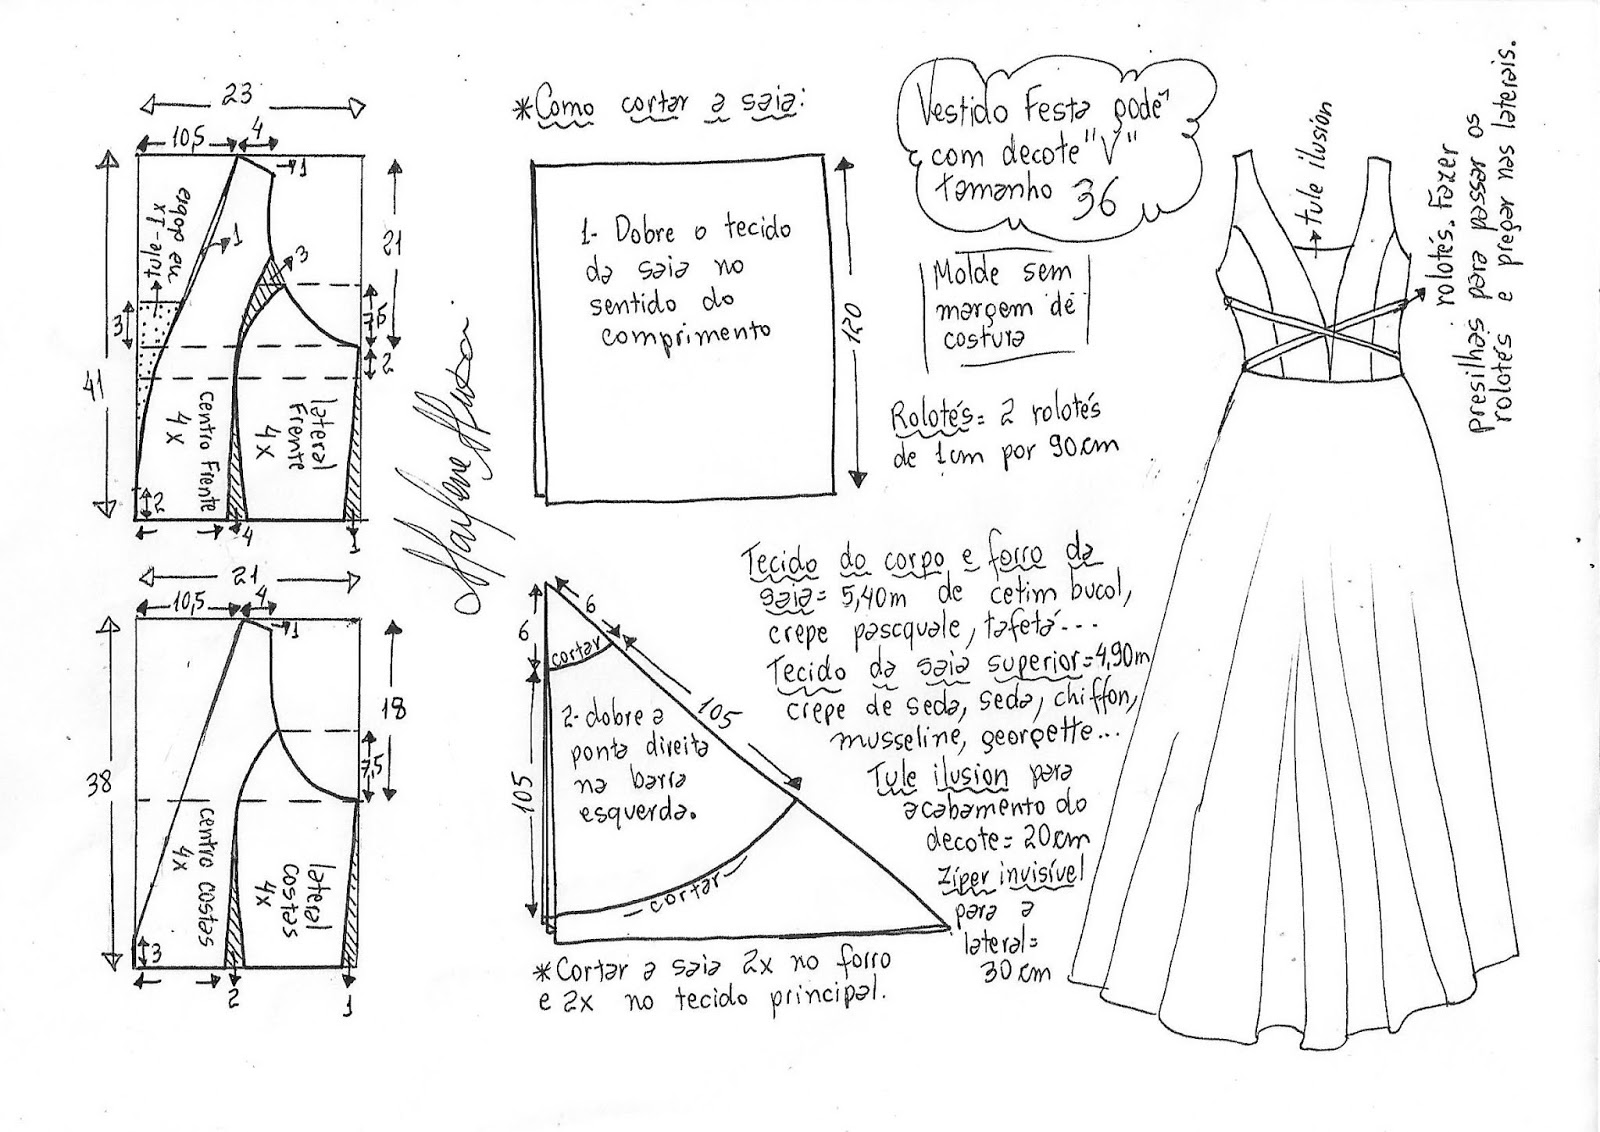 23
10,5
4
1
41
21
tule-1x
na dobra
1
3
3
7,5
2
centro Frente
4x
lateral
Frente
4x
2
4
1
21
10,5
4
1
38
18
7,5
centro costas
4x
lateral
costas
4x
3
2
1
*Como cortar a saia:
1- Dobre o tecido
da saia no
sentido do
comprimento
120
6
6
cortar
105
105
2-dobre a
ponta direita
na barra
esquerda.
cortar
*Cortar a saia 2x no forro
e 2x no tecido principal.
Vestido Festa godê
com decote "V"
tamanho 36
Molde sem
margem de
costura
Rolotés= 2 rolotés
de 1cm por 90cm
Tecido do corpo e forro da
saia= 5,40m de cetim bucol,
crepe pascquale, tafetá...
Tecido da saia superior=4,90m
crepe de seda, seda, chiffon,
musseline, georgette...
Tule ilusion para
acabamento do
decote= 20cm
Zíper invisível
para a
lateral=
30cm
tule ilusion
rolotés. Fazer
presilhas para passar os
rolotés e pregar nas laterais.